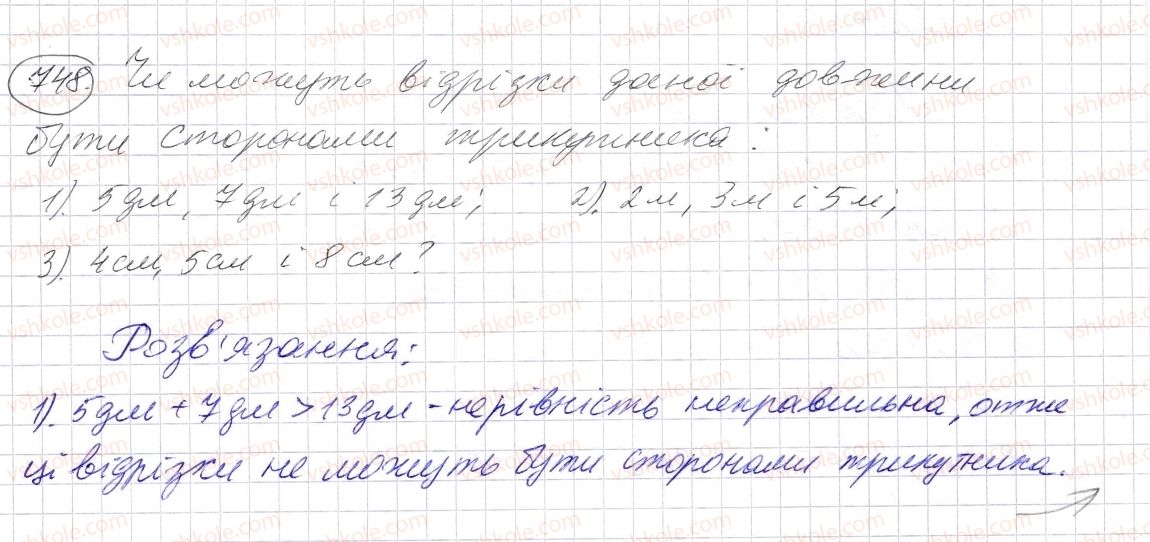 748. Чи можуть відрізки даної довжини
бути сторонами трикутника:
1). 5дм, 7дм і 13дм; 2). 2м, 3м і 5м;
3). 4см, 5см і 8см?
Розв'язання:
1). 5дм + 7дм > 13дм - нерівність неправильна, отже
ці відрізки не можуть бути сторонами трикутника.